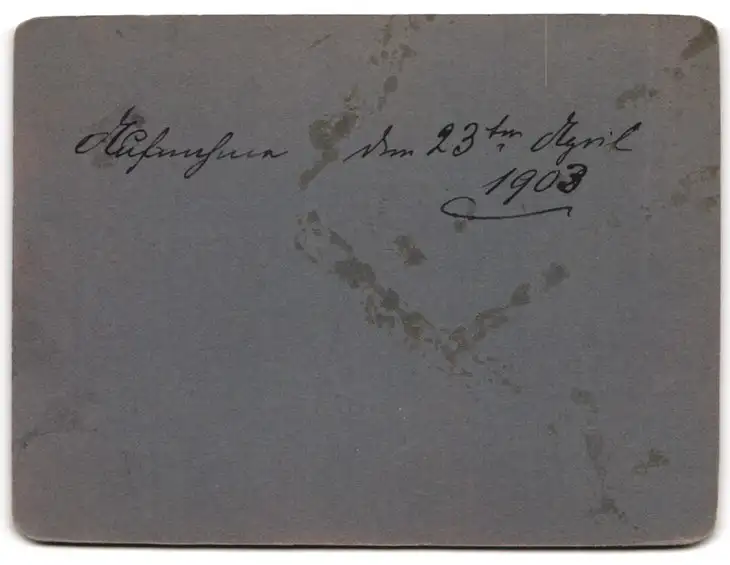 Aufnahme den 23ten April
1903